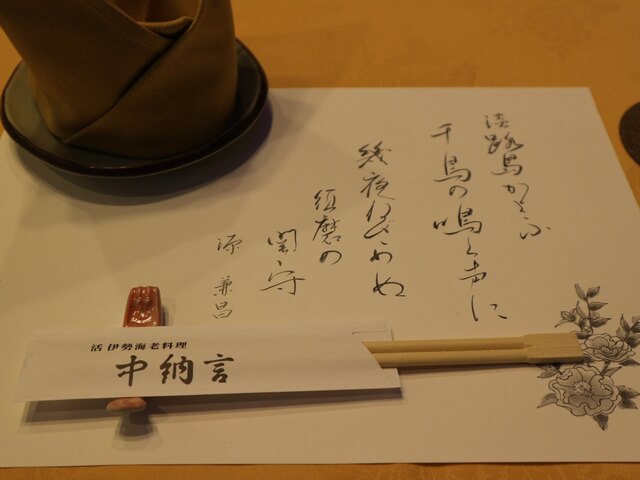 淡路島かよふ
千鳥の鳴く声に
幾夜ねざめぬ
須磨の
関守
源 兼昌
活 伊勢海老料理
中納言